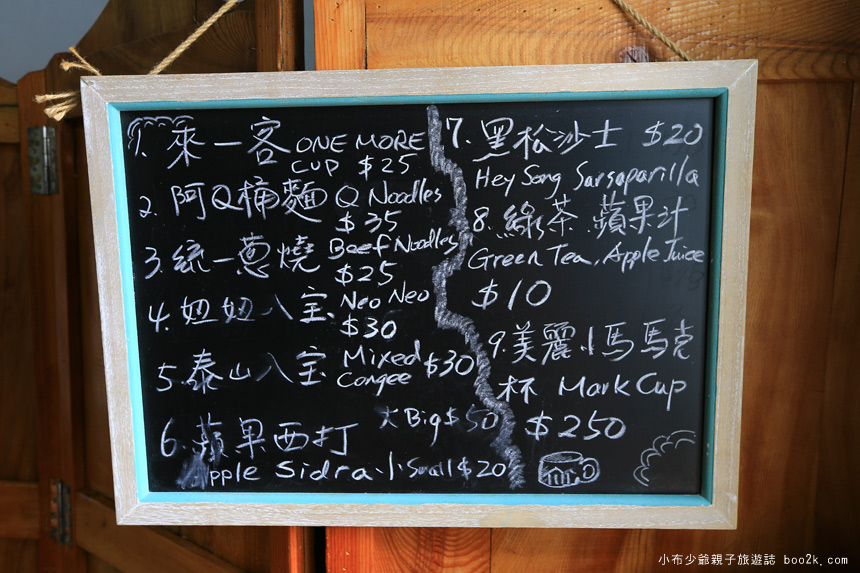 1. 來一客 ONE MORE
CUP $25
2. 阿Q桶麵 Q Noodles
$35
3. 統一蔥燒 Beef Noodles
$25
4. 妞妞八宝 Neo Neo
$30
5. 泰山八宝 Mixed
Congee $30
6. 蘋果西打 大 Big $50
Apple Sidra 小 Small $20
7. 黑松沙士 $20
Hey Song Sarsaparilla
8. 綠茶.蘋果汁
Green Tea. Apple Juice
$10
9. 美麗小馬馬克
杯 Mark Cup
$250
小布少爺親子旅遊誌 boo2k.com